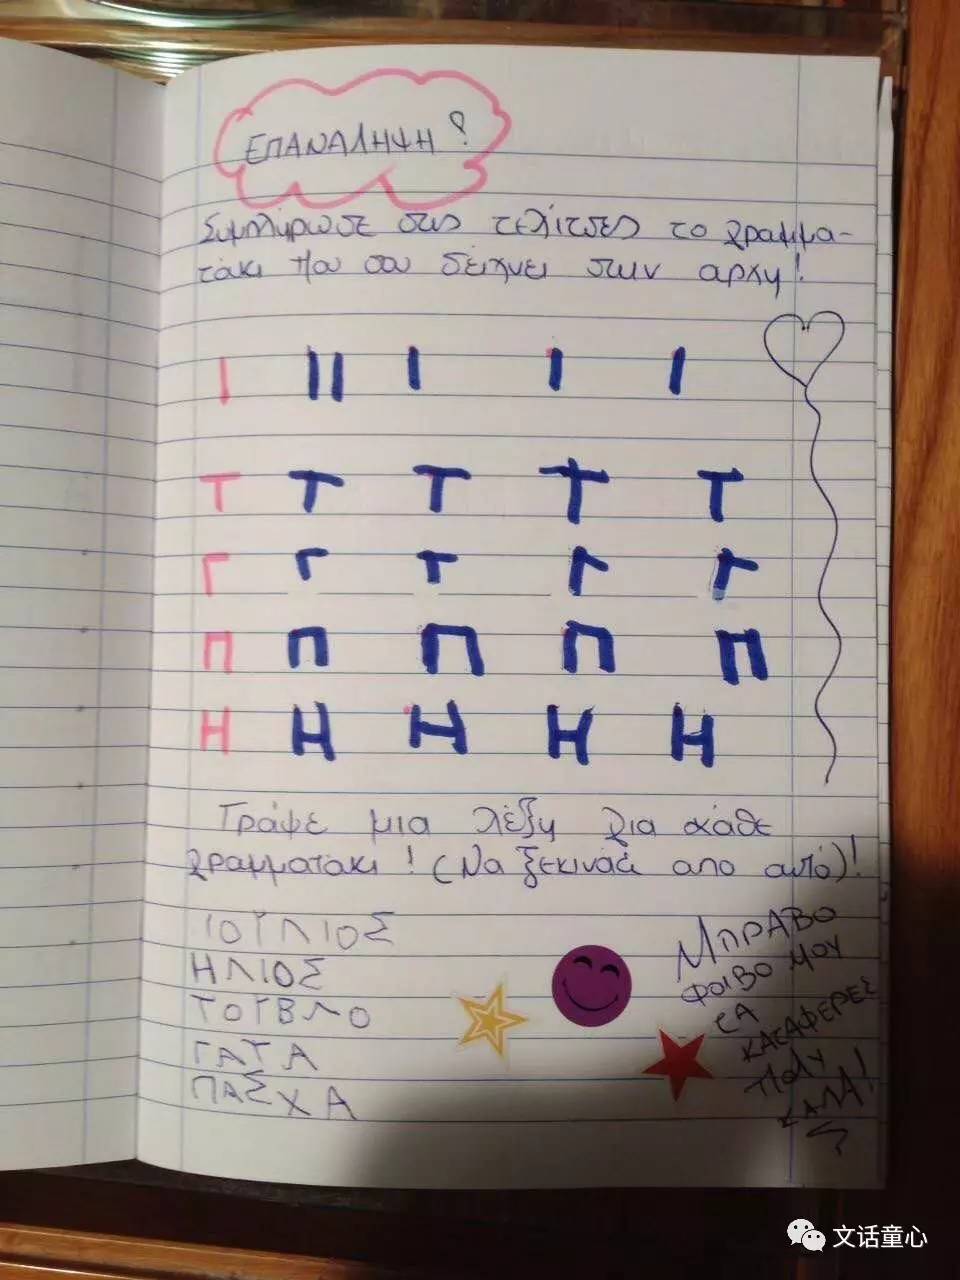 ΕΠΑΝΑΛΗΨΗ!
Συμπλήρωσε στις τελίτσες το γραμμα-
τάκι που σου δείχνει στην αρχη!
Ι ΙΙ Ι Ι Ι
Τ Τ Τ Τ Τ
Γ Γ Τ Γ Γ
Π Π Π Π Π
Η Η Η Η Η
Γράψε μια λέξη για κάθε
γραμματάκι! (Να ξεκινάει απο αυτό)!
ΙΟΥΛΙΟΣ
ΗΛΙΟΣ
ΤΟΥΒΛΟ
ΓΑΤΑ
ΠΑΣΧΑ
ΜΠΡΑΒΟ
ΦΟΙΒΟ ΜΟΥ
ΤΑ
ΚΑΤΑΦΕΡΕΣ
ΠΟΛΥ
ΚΑΛΑ!
文话童心